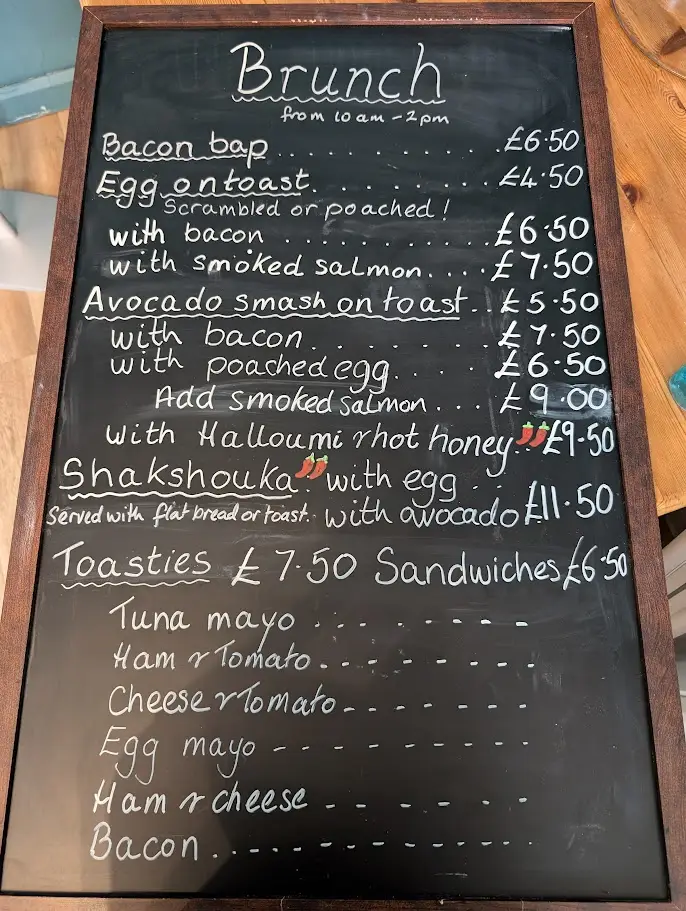 Brunch
from 10am - 2pm
Bacon bap . . . . . . . . . . . . £6.50
Egg on toast . . . . . . . . . . £4.50
Scrambled or poached!
with bacon . . . . . . . . . . . £6.50
with smoked salmon . . . . £7.50
Avocado smash on toast . . £5.50
with bacon . . . . . . . . . £7.50
with poached egg . . . . £6.50
Add smoked salmon . . . £9.00
with Halloumi & hot honey 🌶🌶 £9.50
Shakshouka 🌶🌶 with egg . . .
Served with flat bread or toast . . with avocado £11.50
Toasties £7.50 Sandwiches £6.50
Tuna mayo . . . - - - - -
Ham & Tomato . . - - - - - -
Cheese & Tomato - - - - - - -
Egg mayo - - - - - - - - -
Ham & cheese - - - - - -
Bacon . . - - - - - - - - -